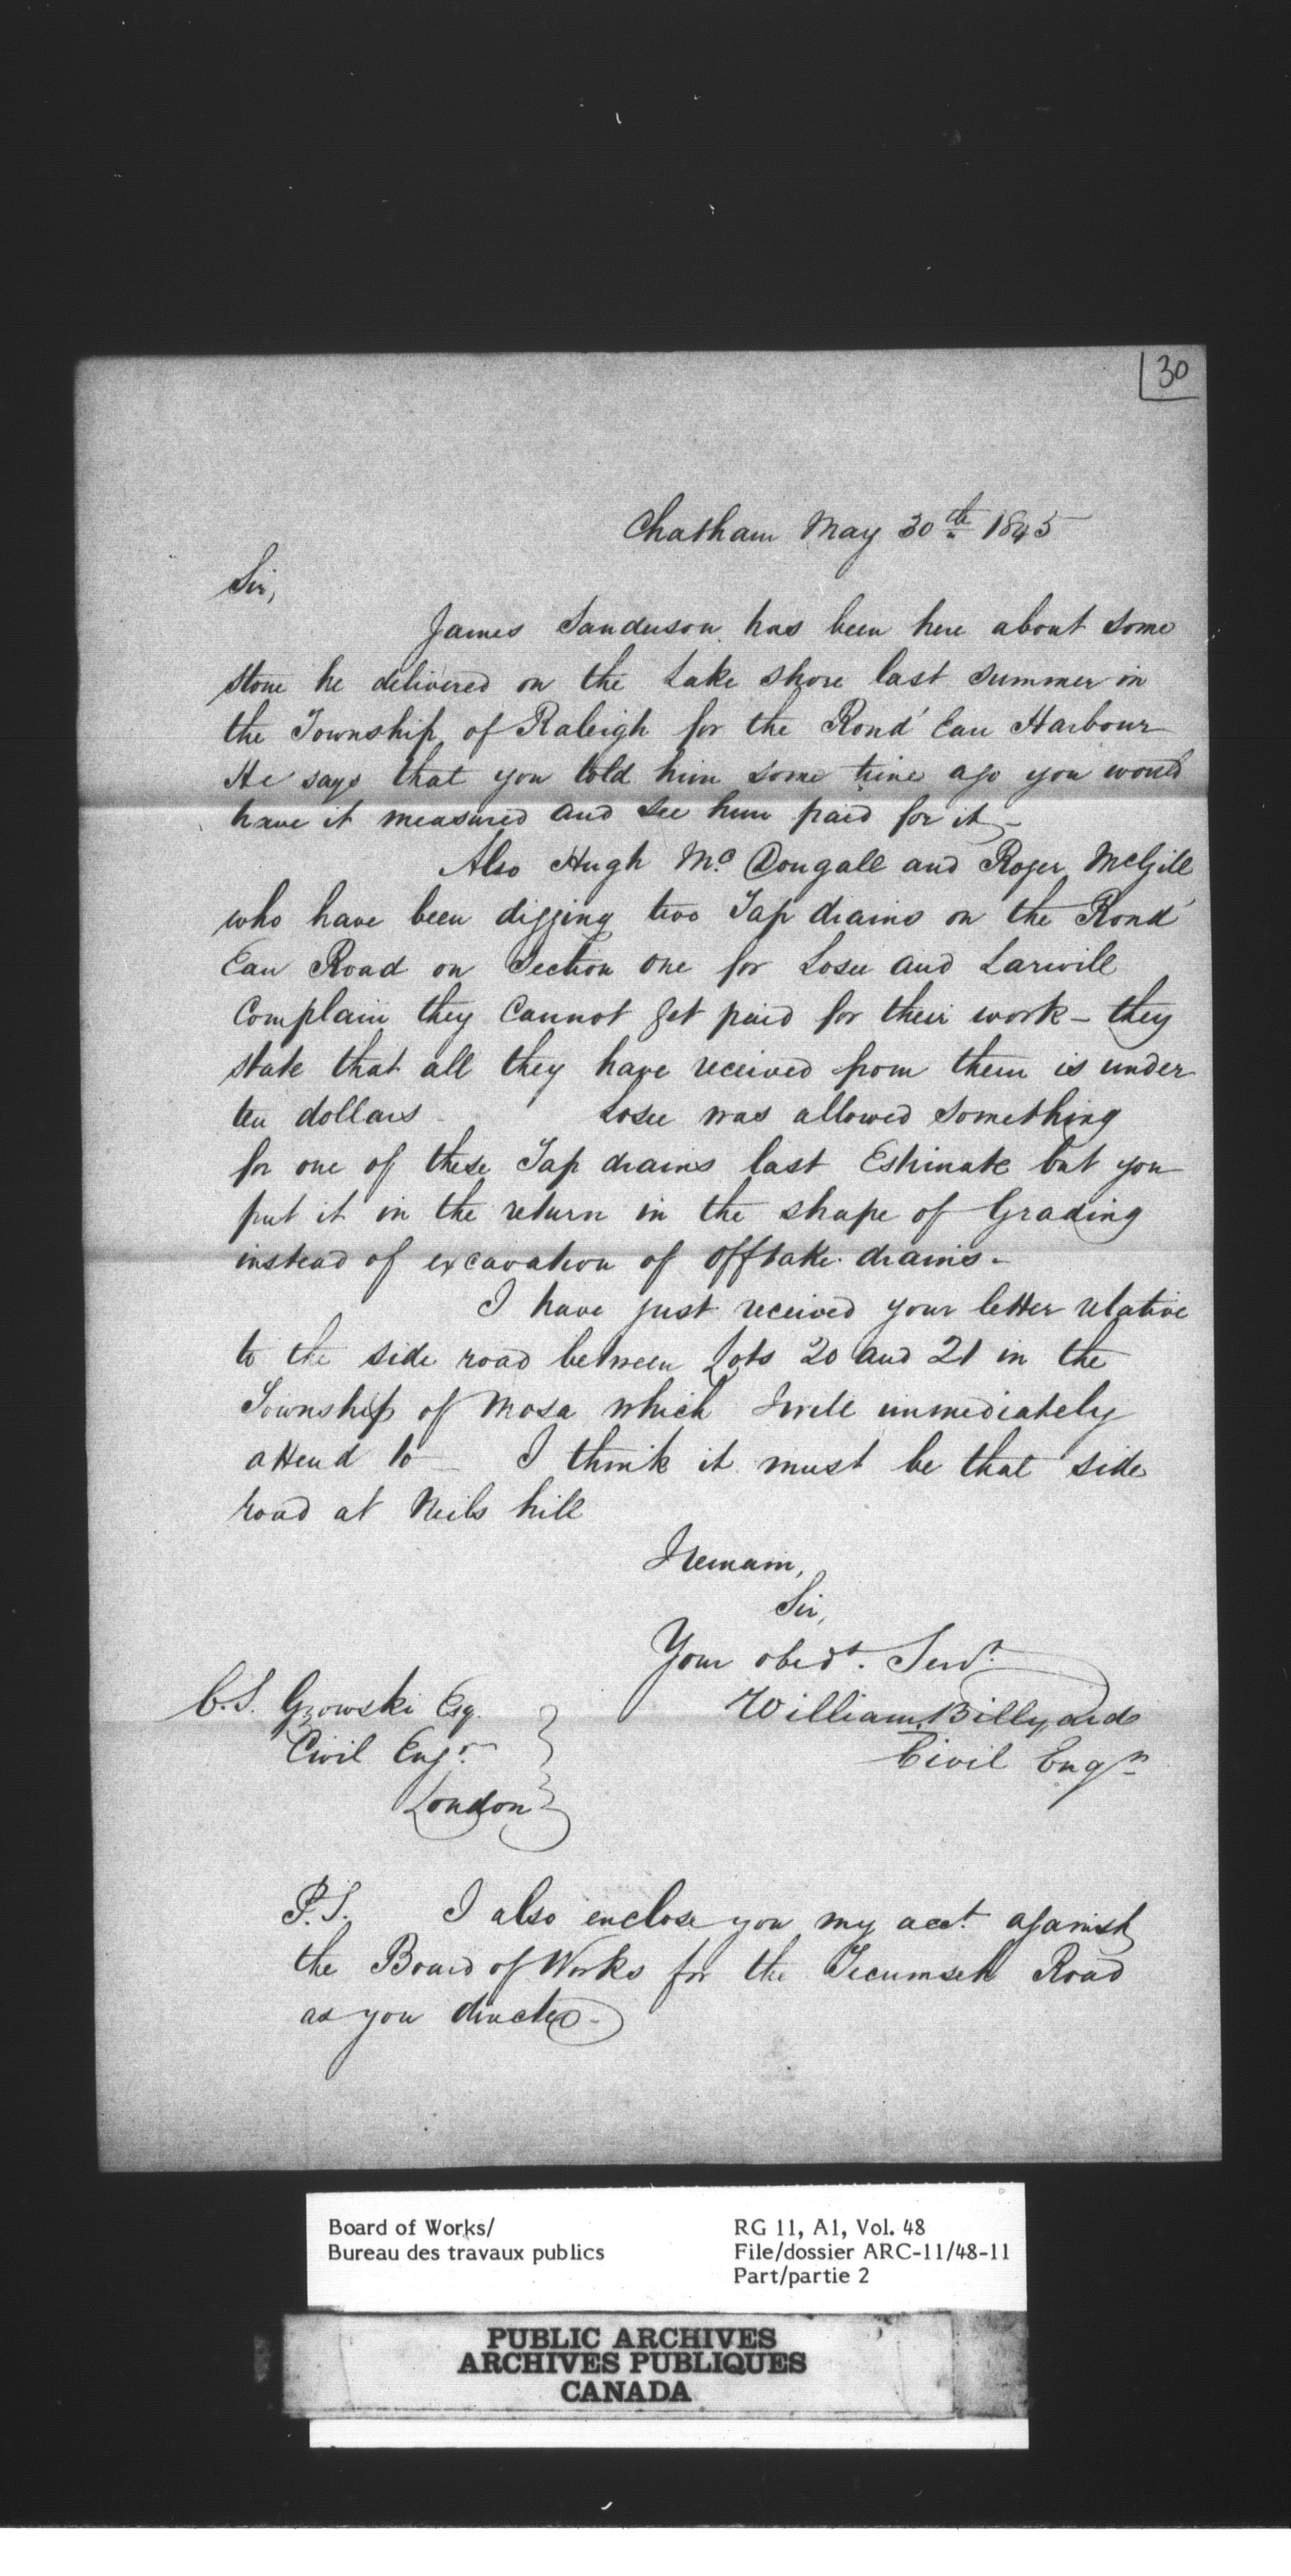 30
Chatham May 30th 1845
Sir,
James Sanderson has been here about some
stone he delivered on the Lake shore last summer in
the Township of Raleigh for the Rond' Eau Harbour
He says that you told him some time ago you would
have it measured and see him paid for it -
Also Hugh Mc Dougall and Roger McGill
who have been digging two Tap drains on the Rond'
Eau Road on Section one for Losee and Larwill
Complain they Cannot get paid for their work - they
state that all they have received from them is under
ten dollars - Losee was allowed something
for one of these Tap drains last Estimate but you
put it in the return in the shape of Grading
instead of excavation of Offtake drains -
I have just received your letter relative
to the side road between Lots 20 and 21 in the
Township of Mosa which I will immediately
attend to - I think it must be that side
road at Neils hill
I remain,
Sir,
Your obedt. Servt.
William Billyard
Civil Engr
C. S. Gzowski Esq.
Civil Engr.
London
P.S. I also enclose you my acct. against
the Board of Works for the Tecumseh Road
as you directed -
Board of Works/
Bureau des travaux publics
RG 11, A1, Vol. 48
File/dossier ARC-11/48-11
Part/partie 2
PUBLIC ARCHIVES
ARCHIVES PUBLIQUES
CANADA